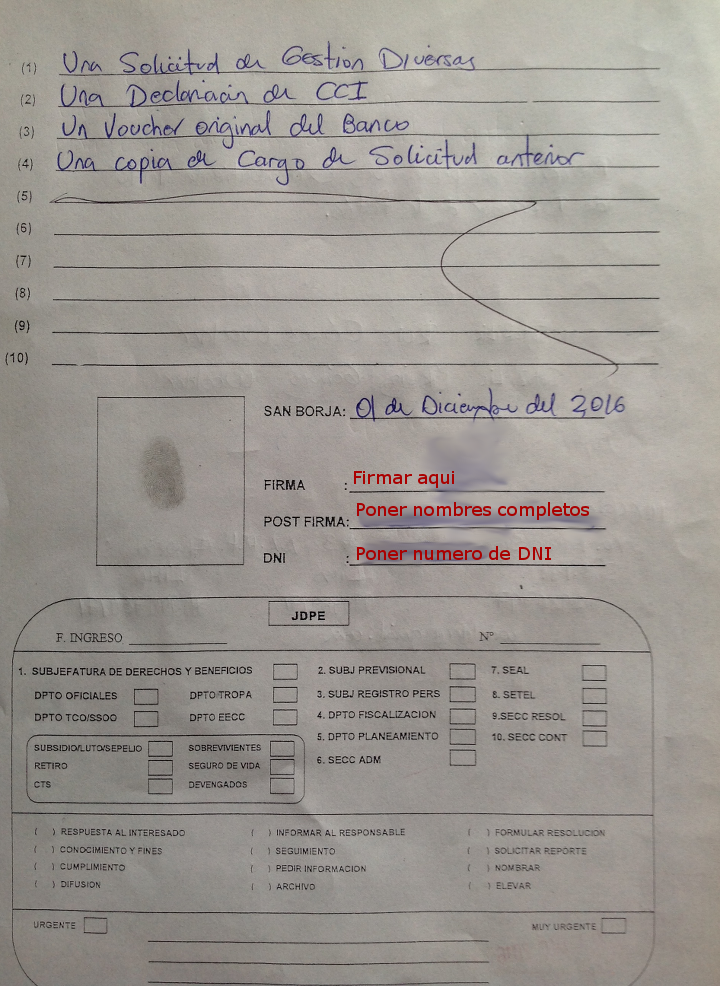 (1) Una Solicitud de Gestión Diversas
(2) Una Declaración de CCI
(3) Un Voucher original del Banco
(4) Una copia de Cargo de Solicitud anterior
(5)
(6)
(7)
(8)
(9)
(10)
SAN BORJA: 01 de Diciembre del 2,016
FIRMA : Firmar aqui
POST FIRMA: Poner nombres completos
DNI : Poner numero de DNI
JDPE
F. INGRESO Nº
1. SUBJEFATURA DE DERECHOS Y BENEFICIOS 2. SUBJ PREVISIONAL 7. SEAL
DPTO OFICIALES DPTO TROPA 3. SUBJ REGISTRO PERS 8. SETEL
DPTO TCO/SSOO DPTO EECC 4. DPTO FISCALIZACION 9.SECC RESOL
5. DPTO PLANEAMIENTO 10. SECC CONT
SUBSIDIO/LUTO/SEPELIO SOBREVIVIENTES 6. SECC ADM
RETIRO SEGURO DE VIDA
CTS DEVENGADOS
( ) RESPUESTA AL INTERESADO ( ) INFORMAR AL RESPONSABLE ( ) FORMULAR RESOLUCION
( ) CONOCIMIENTO Y FINES ( ) SEGUIMIENTO ( ) SOLICITAR REPORTE
( ) CUMPLIMIENTO ( ) PEDIR INFORMACION ( ) NOMBRAR
( ) DIFUSION ( ) ARCHIVO ( ) ELEVAR
URGENTE MUY URGENTE